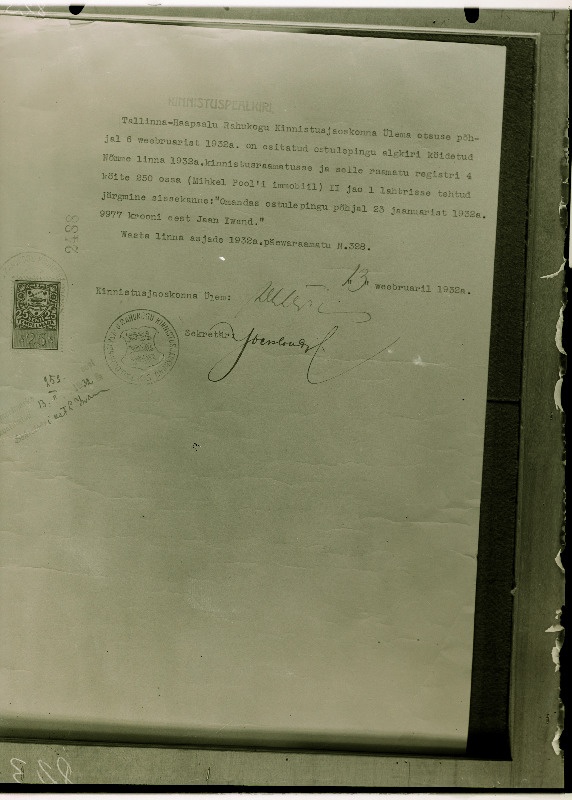 KINNISTUSPEALKIRI
Tallinna-Haapsalu Rahukogu Kinnistusjaoskonna Ülema otsuse põh-
jal 6 weebruarist 1932a. on esitatud ostulepingu algkiri köidetud
Nõmme linna 1932a.kinnistusraamatusse ja selle raamatu registri 4
köite 250 ossa (Mihkel Pool'i immobiil) II jao 1 lahtrisse tehtud
järgmine sissekanne:"Omandas ostulepingu põhjal 23 jaanuarist 1932a.
9977 krooni eest Jaan Iwand."
Waata linna asjade 1932a.päewaraamatu N.328.
"13" weebruaril 1932a.
Kinnistusjaoskonna Ülem:
Sekretär:
2488
25
253
13. II 32